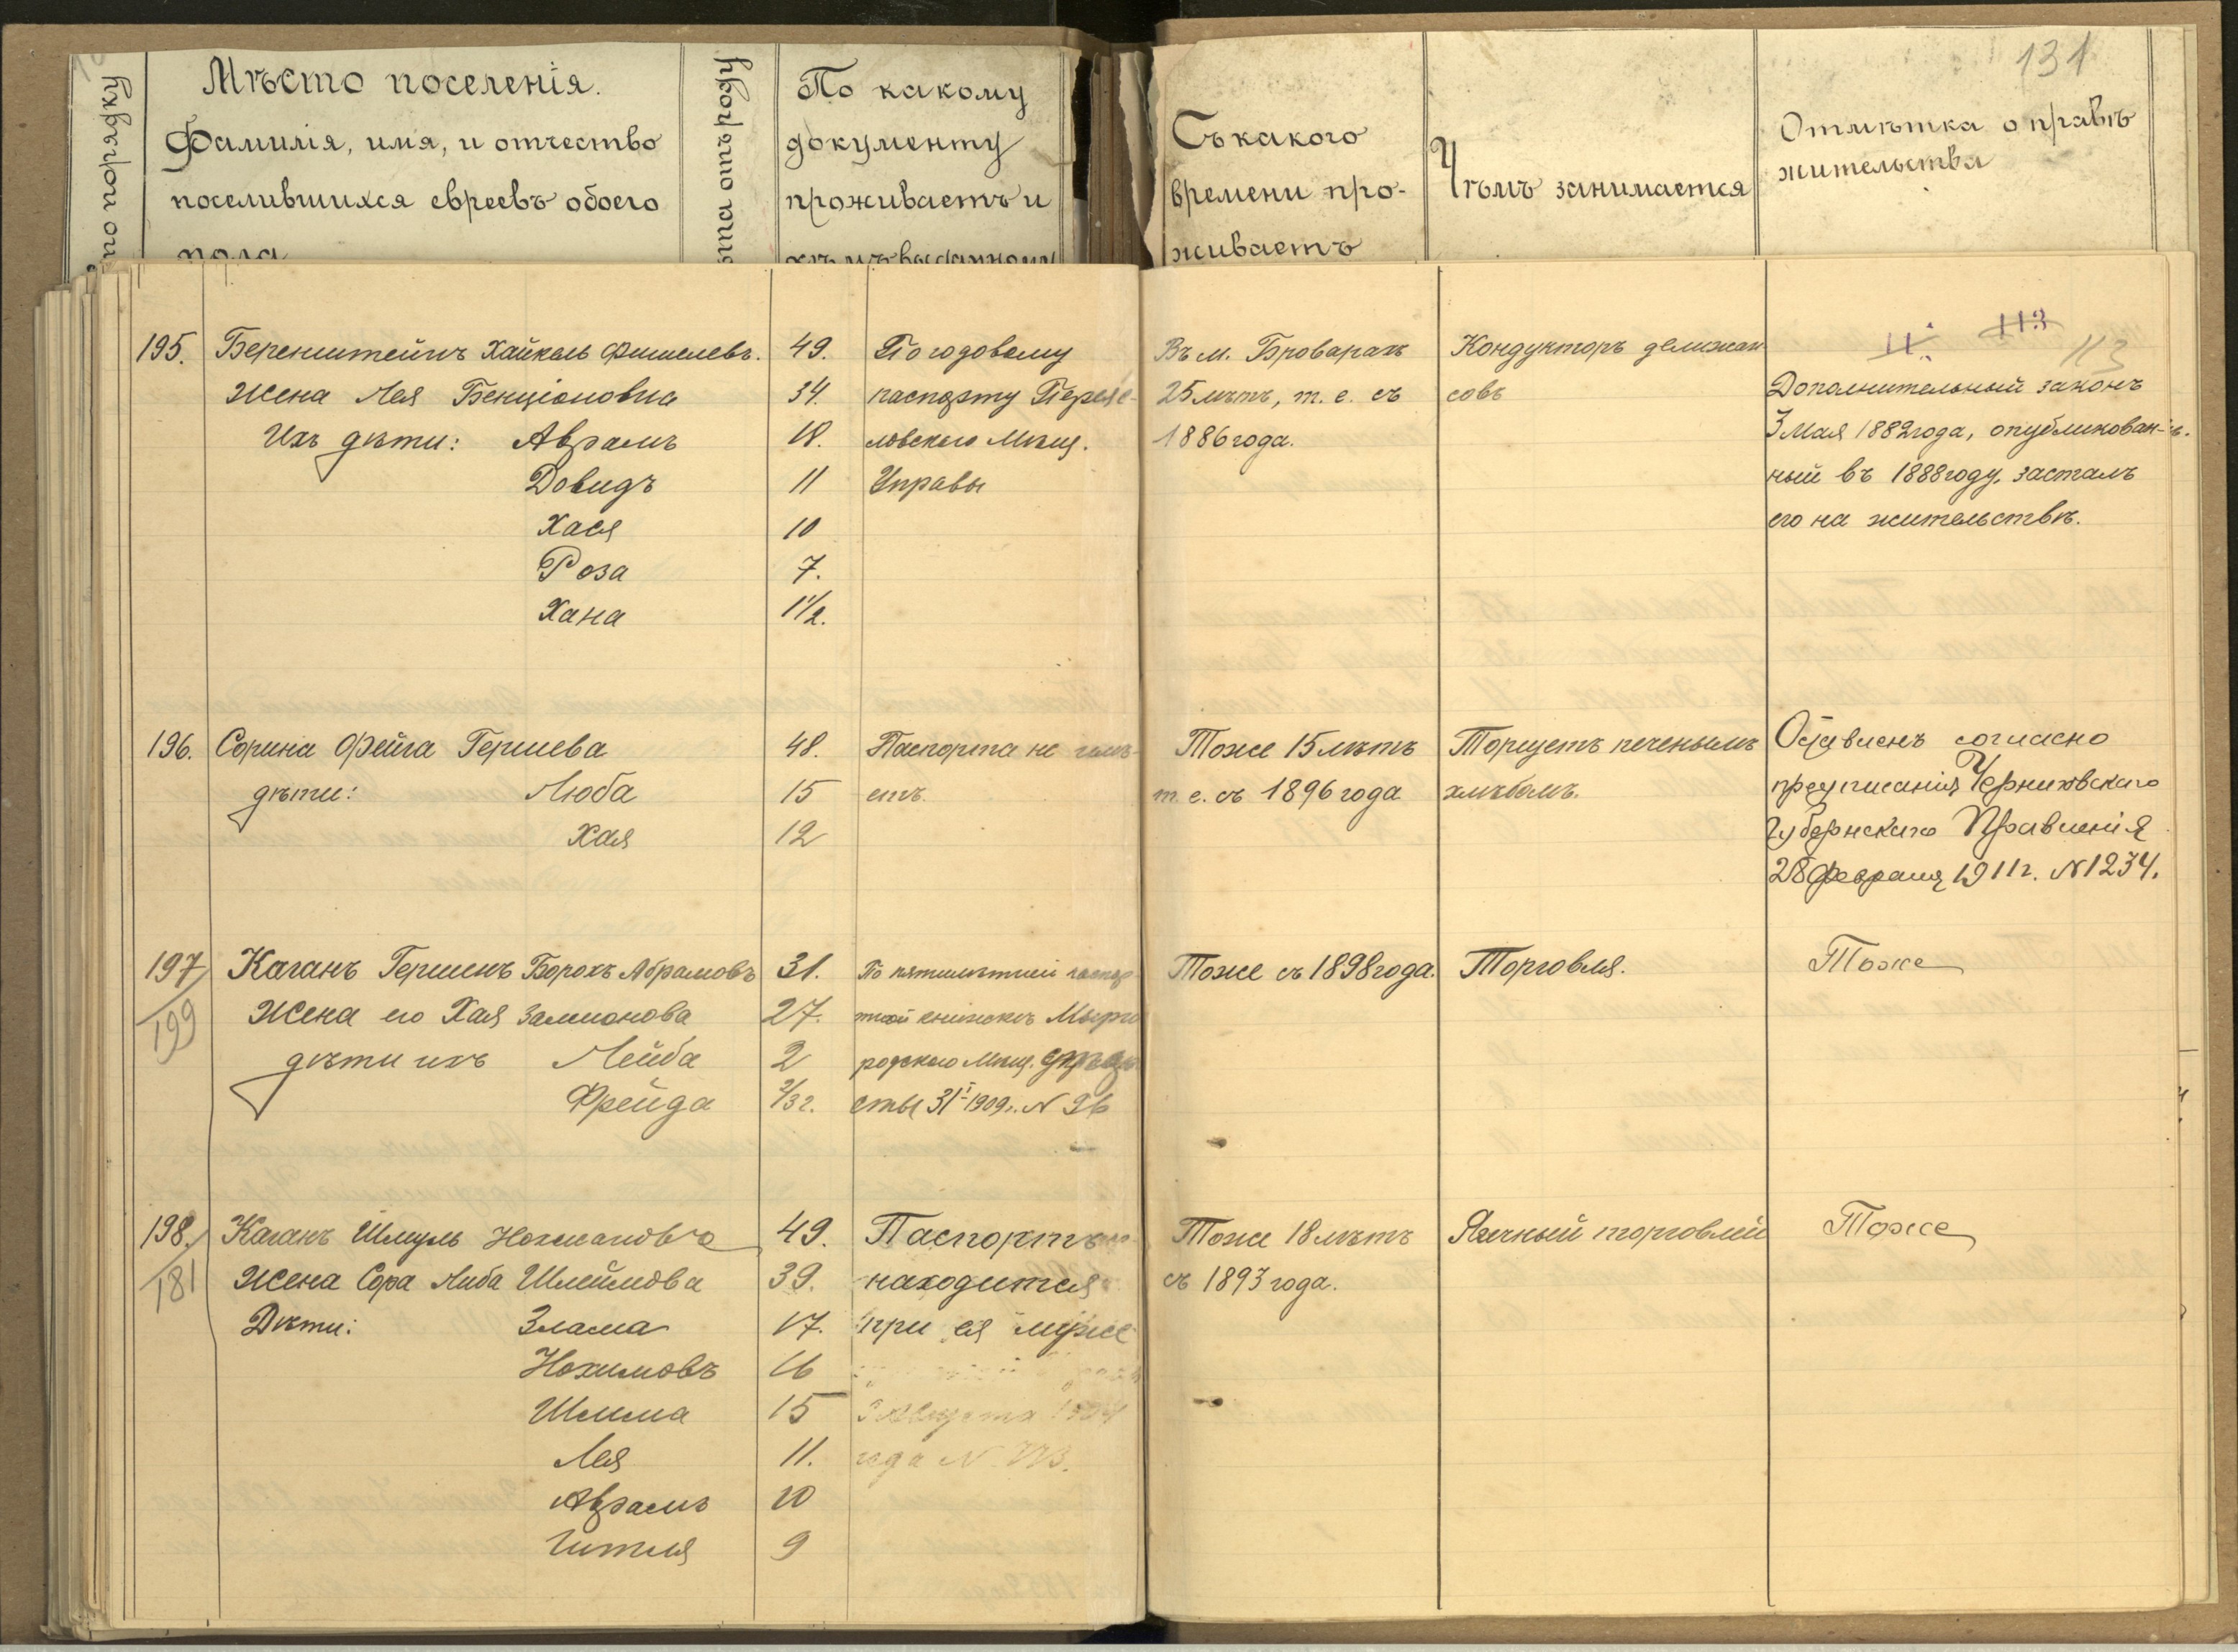 131
по порядку
Мѣсто поселенія.
Фамилія, имя, и отчество
поселившихся евреевъ обоего
пола
отъ роду
По какому
документу
проживаетъ и
Съ какого
времени про-
живаетъ
Чѣмъ занимается
Отмѣтка о правѣ
жительства
113
113
195. Беренштейнъ Хайкель Фишелевъ. 49. По годовому Въ м. Броварахъ Кондукторъ дилижан
Жена Лея Бенціоновна 34. паспорту Перея- 25 лѣтъ, т. е. съ совъ Дополнительный законъ
Ихъ дѣти: Аврамъ 18. ловскаго Мѣщ. 1886 года. 3 Мая 1882 года, опубликован-
Довидъ 11 Управы ный въ 1888 году, засталъ
Хася 10 его на жительствѣ.
Роза 7.
Хана 1 1/2.
196. Сорина Фейга Гершева 48. Паспорта не имѣ- Тоже 15 лѣтъ Торгуетъ печенымъ Оставленъ согласно
дѣти: Люба 15 етъ. т. е. съ 1896 года хлѣбомъ. предписанія Черниговскаго
Хая 12 Губернскаго Правленія
28 Февраля 1911 г. N 1234.
197 Каганъ Гершенъ Борохъ Абрамовъ 31. По пятилѣтней паспор Тоже съ 1898 года. Торговля. Тоже
199 Жена его Хая Залмонова 27. тной книжкѣ
дѣти ихъ Лейба 2 родскаго Мѣщ.
Фрейда 2/3 г. 31 I 1909 г. N 26
198. Каганъ Шмуль Нохмановъ 49. Паспортъ Тоже 18 лѣтъ Яичный торговлей Тоже
181 Жена Сора Либа Шлеймова 39. находится съ 1893 года.
Дѣти: Злата 17. при ея мужѣ
Нохимовъ 16
Шлима 15 Августа
Лея 11. года N
Аврамъ 10
Гитля 9